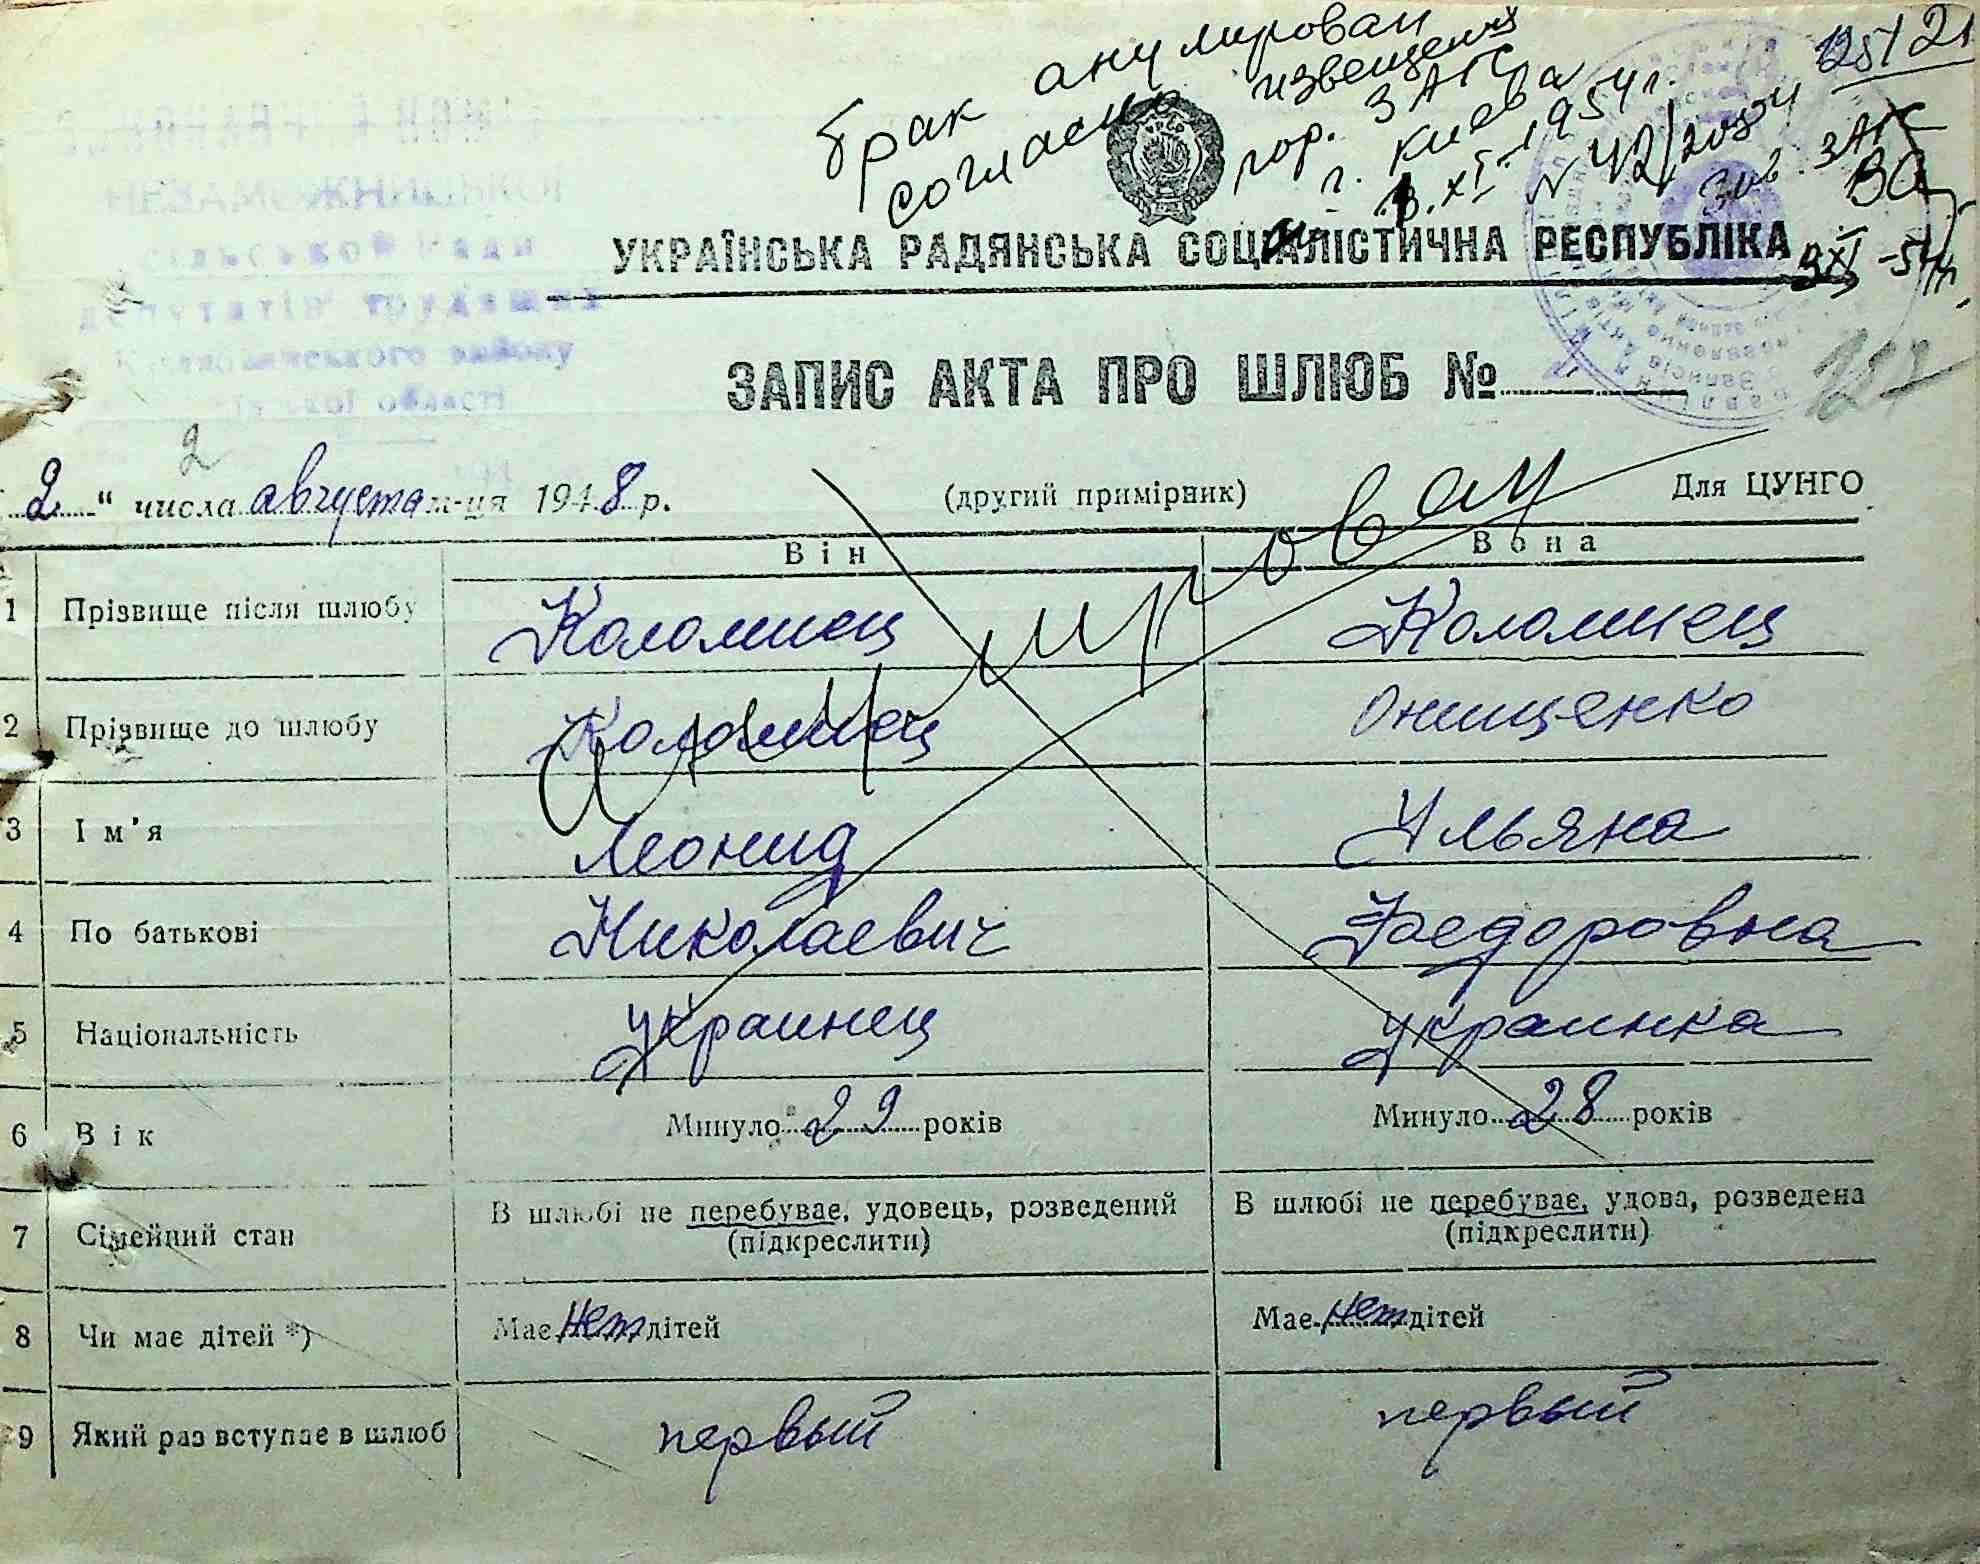 брак анулирован
согласно извещения
гор. ЗАГС
г. Киева
XI. 1954 г.
N 42/2034
Зав. ЗАГС
125/21
НЕЗАМОЖНИЦЬКОЇ
сільської Ради
депутатів трудящих
району
області
УКРАЇНСЬКА РАДЯНСЬКА СОЦІАЛІСТИЧНА РЕСПУБЛІКА
ЗАПИС АКТА ПРО ШЛЮБ №
257
2
2 " числа августа м-ця 1948 р.
(другий примірник)
Для ЦУНГО
Анулирован
Він Вона
1 Прізвище після шлюбу Коломиец Коломиец
2 Прізвище до шлюбу Коломиец Онищенко
3 Ім'я Леонид Ульяна
4 По батькові Николаевич Федоровна
5 Національність Украинец Украинка
6 Вік Минуло 29 років Минуло 28 років
7 Сімейний стан В шлюбі не перебуває, удовець, розведений (підкреслити) В шлюбі не перебуває, удова, розведена (підкреслити)
8 Чи має дітей *) Має нет дітей Має нет дітей
9 Який раз вступає в шлюб первый первый